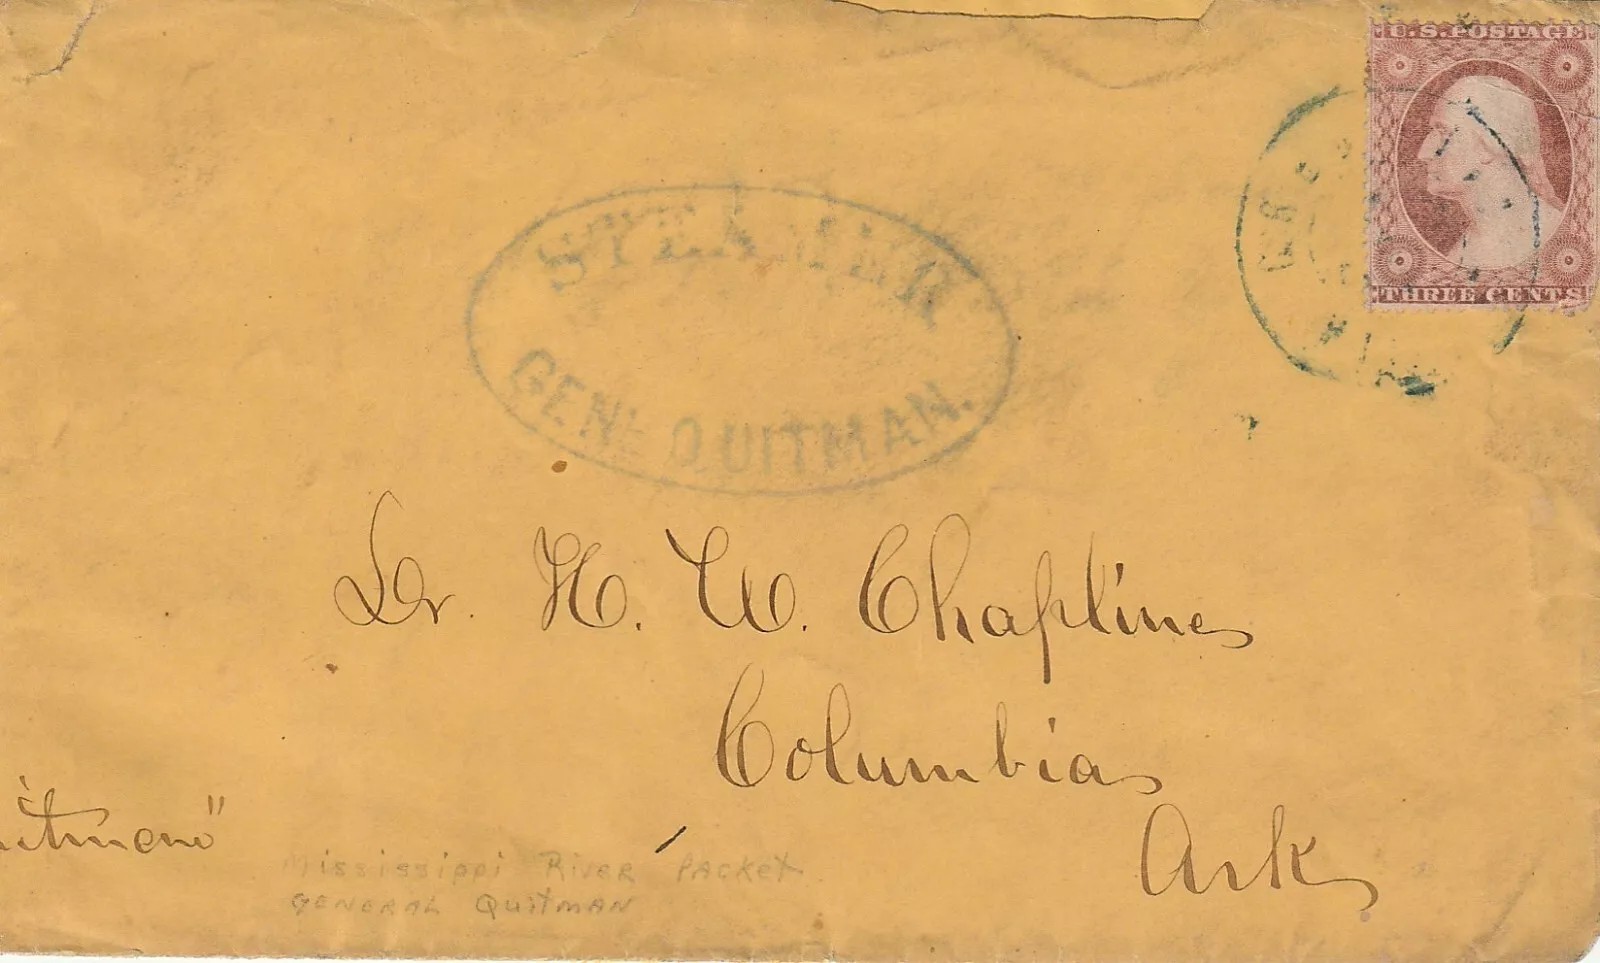 U.S. POSTAGE
THREE CENTS
STEAMER
GENL QUITMAN.
Dr. H. W. Chaplines
Columbia
Ark
itman"
Mississippi River Packet
General Quitman